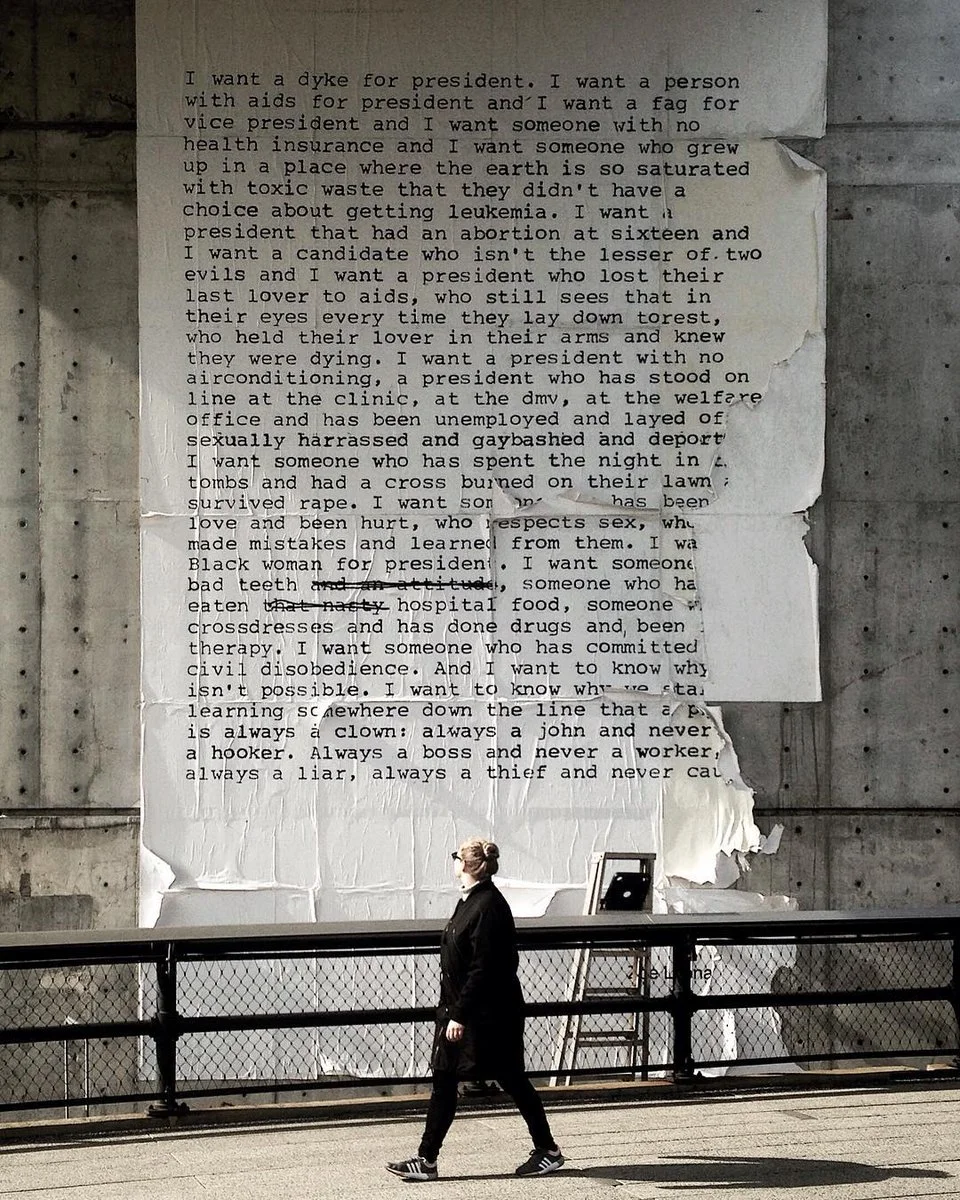 I want a dyke for president. I want a person
with aids for president and I want a fag for
vice president and I want someone with no
health insurance and I want someone who grew
up in a place where the earth is so saturated
with toxic waste that they didn't have a
choice about getting leukemia. I want a
president that had an abortion at sixteen and
I want a candidate who isn't the lesser of two
evils and I want a president who lost their
last lover to aids, who still sees that in
their eyes every time they lay down torest,
who held their lover in their arms and knew
they were dying. I want a president with no
airconditioning, a president who has stood on
line at the clinic, at the dmv, at the welfare
office and has been unemployed and layed of
sexually harrassed and gaybashed and deport
I want someone who has spent the night in
tombs and had a cross burned on their lawn
survived rape. I want has been
love and been hurt, who respects sex,
made mistakes and learned from them. I
Black woman for president. I want someone
bad teeth and an attitude, someone who
eaten that nasty hospital food, someone
crossdresses and has done drugs and been
therapy. I want someone who has committed
civil disobedience. And I want to know why
isn't possible. I want to know why we
learning somewhere down the line that a
is always a clown: always a john and never
a hooker. Always a boss and never a worker,
always a liar, always a thief and never